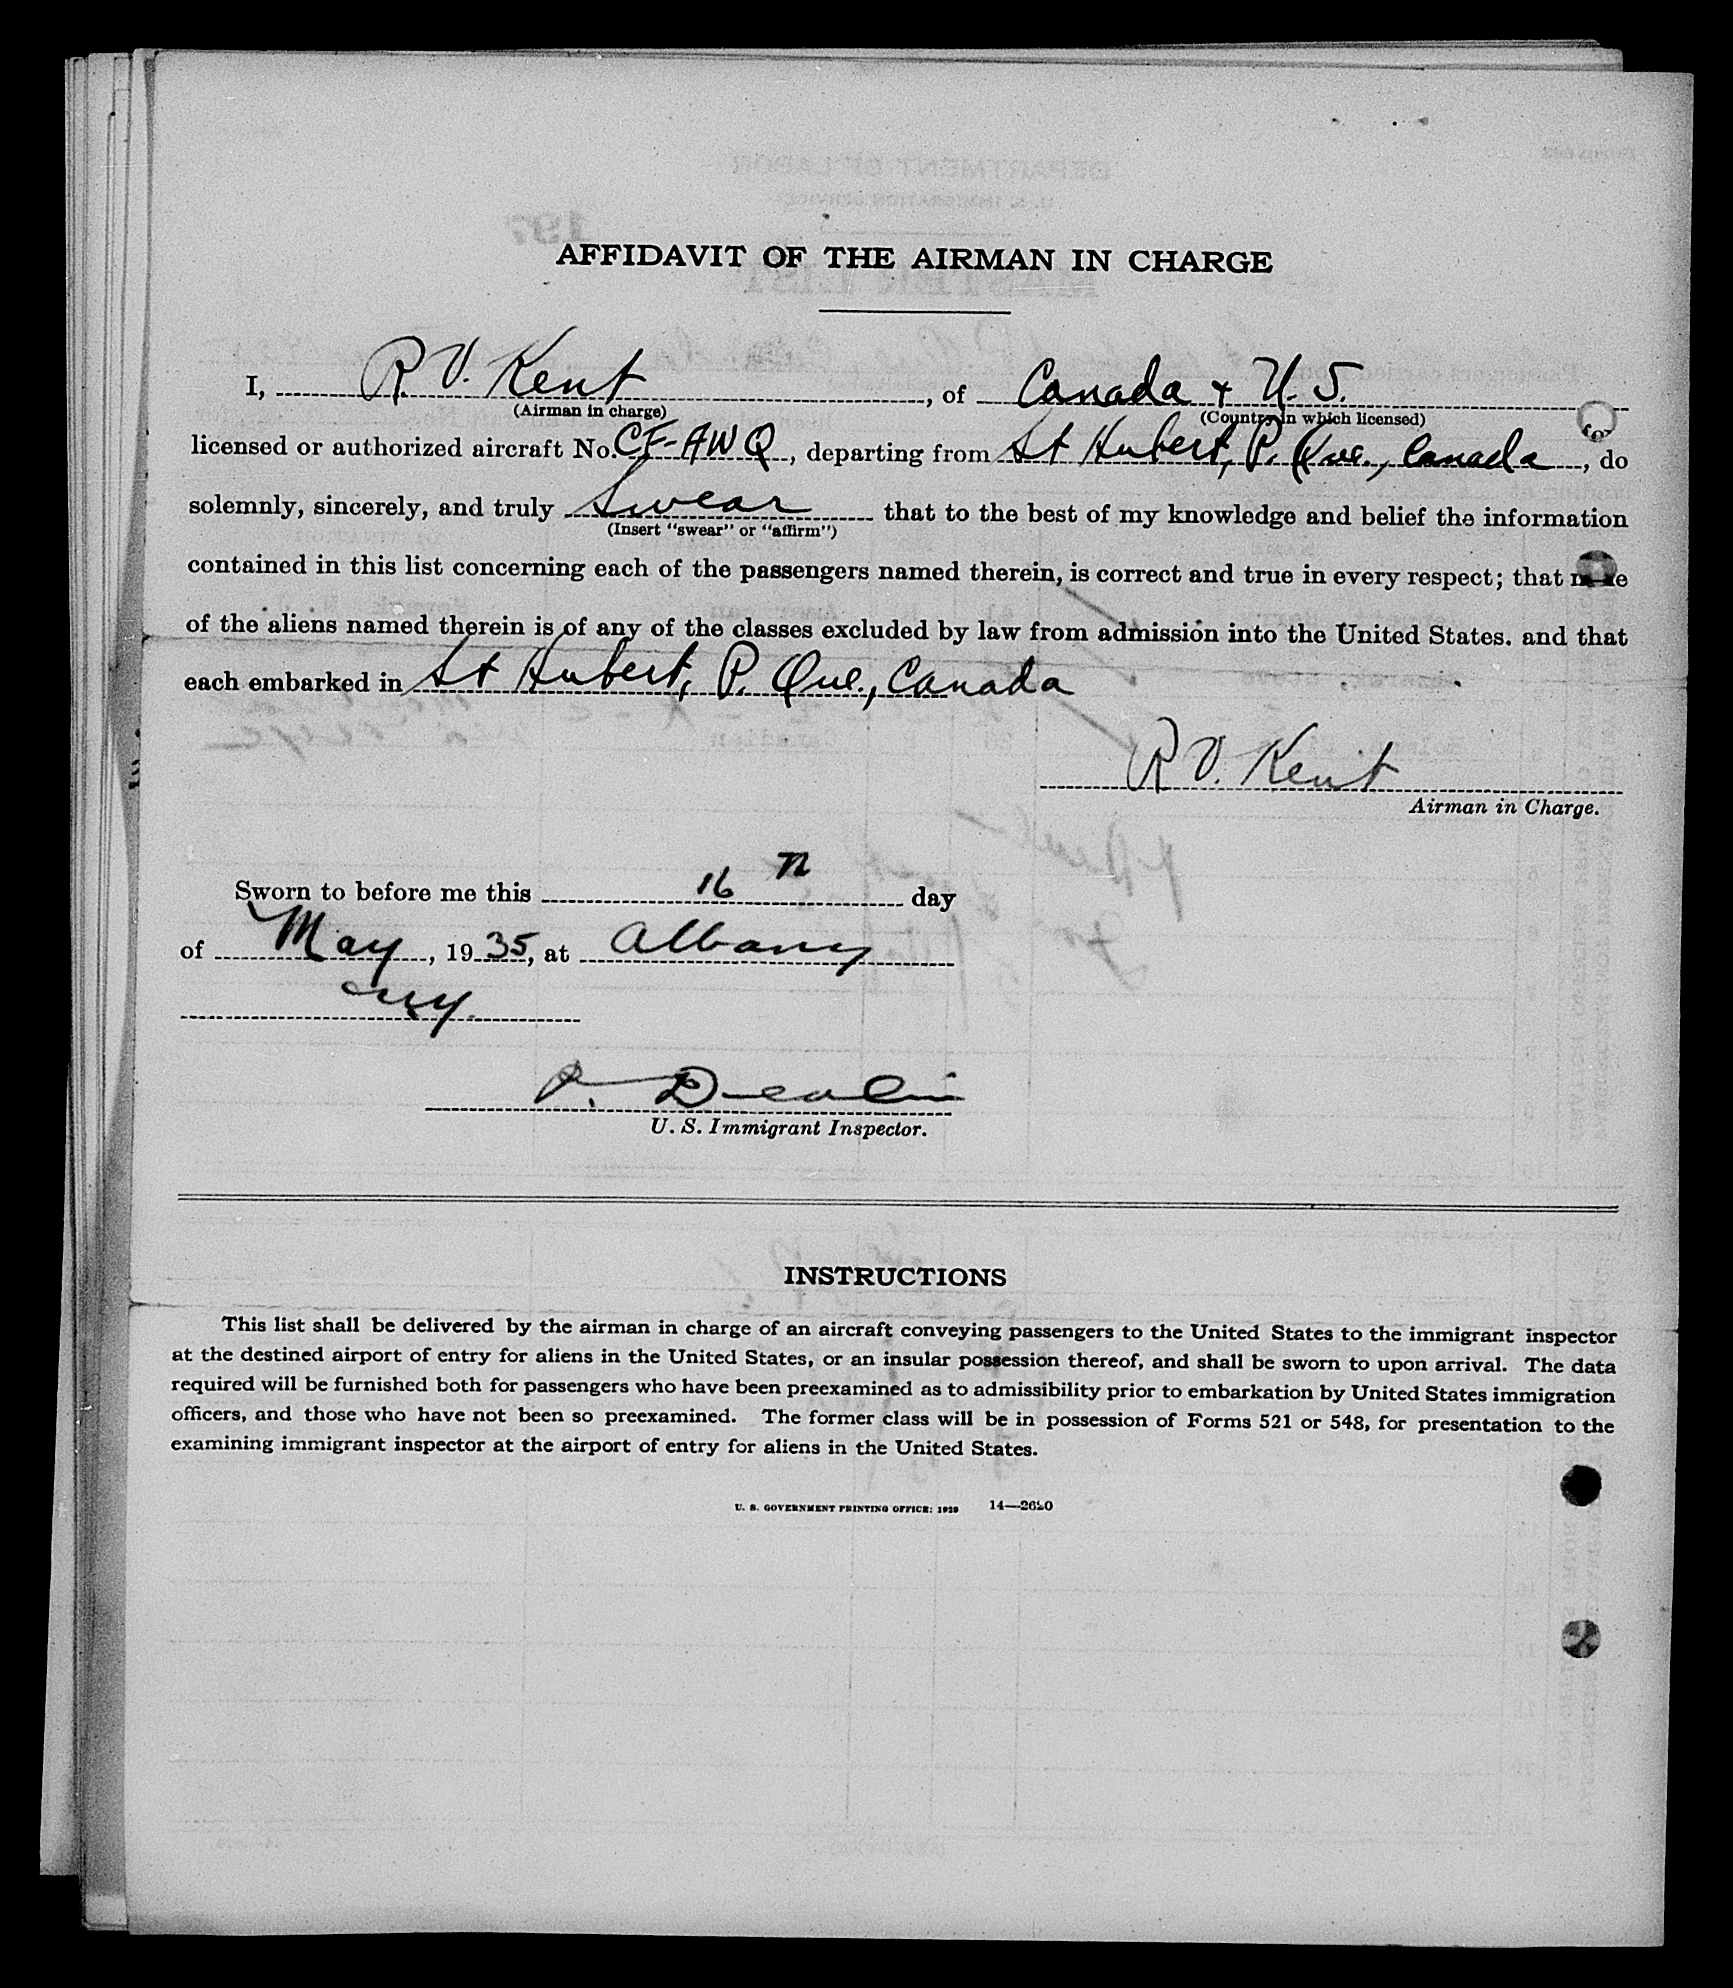 AFFIDAVIT OF THE AIRMAN IN CHARGE
I, R. V. Kent, of Canada + U. S.
(Airman in charge) (Country in which licensed)
licensed or authorized aircraft No. CF-AWQ, departing from St Hubert, P. Que., Canada, do
solemnly, sincerely, and truly Swear that to the best of my knowledge and belief the information
(Insert "swear" or "affirm")
contained in this list concerning each of the passengers named therein, is correct and true in every respect; that none
of the aliens named therein is of any of the classes excluded by law from admission into the United States. and that
each embarked in St Hubert, P. Que., Canada
R V. Kent
Airman in Charge.
Sworn to before me this 16 th day
of May, 1935, at Albany
NY.
U. S. Immigrant Inspector.
INSTRUCTIONS
This list shall be delivered by the airman in charge of an aircraft conveying passengers to the United States to the immigrant inspector
at the destined airport of entry for aliens in the United States, or an insular possession thereof, and shall be sworn to upon arrival. The data
required will be furnished both for passengers who have been preexamined as to admissibility prior to embarkation by United States immigration
officers, and those who have not been so preexamined. The former class will be in possession of Forms 521 or 548, for presentation to the
examining immigrant inspector at the airport of entry for aliens in the United States.
U. S. GOVERNMENT PRINTING OFFICE: 1929